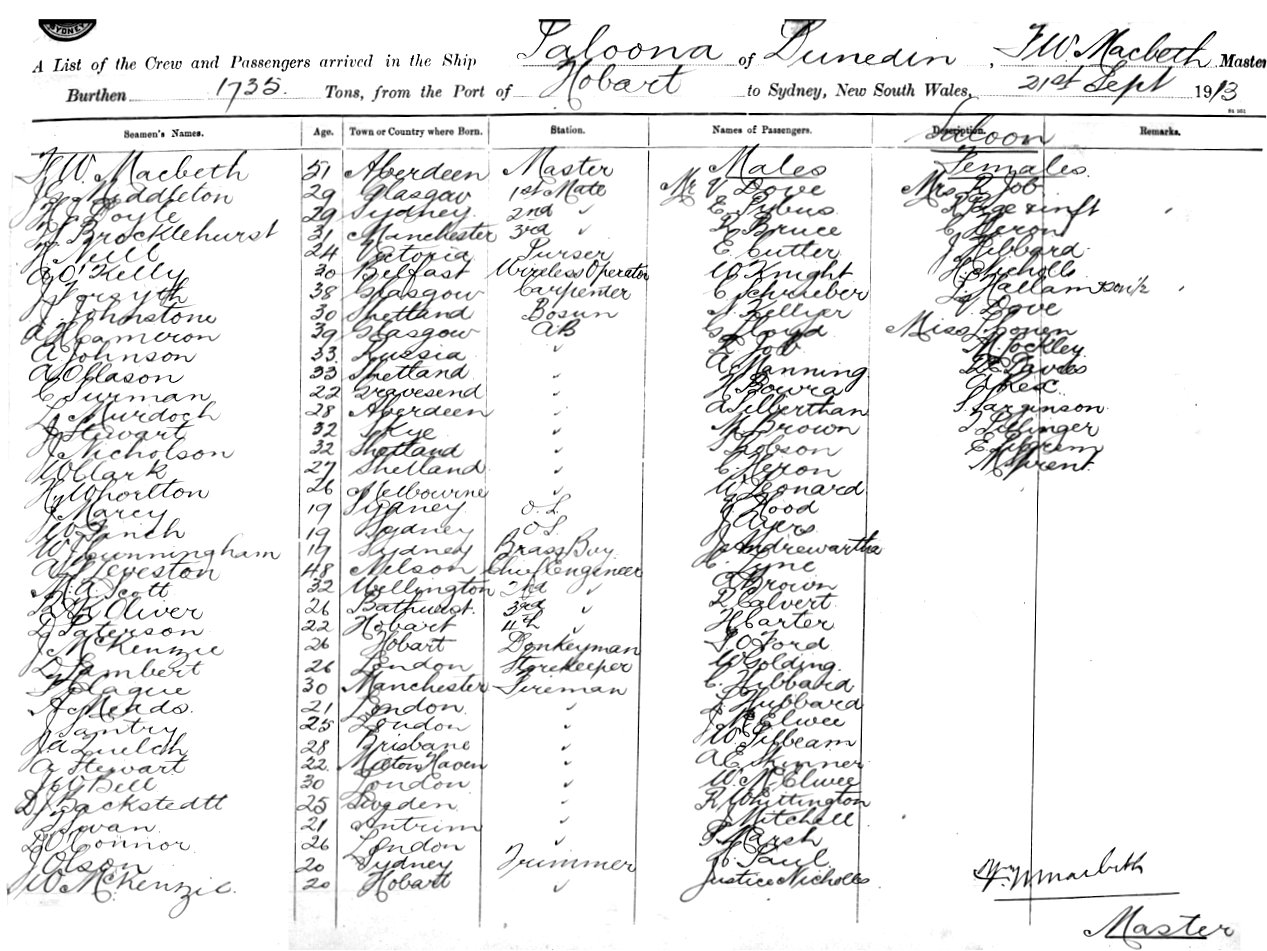 SYDNEY
A List of the Crew and Passengers arrived in the Ship Paloona of Dunedin, F W. Macbeth Master
Burthen 1735. Tons, from the Port of Hobart to Sydney, New South Wales, 21st Sept 1913
Seamen's Names. Age. Town or Country where Born. Station. Names of Passengers. Description. Remarks.
Saloon
F W. Macbeth 51 Aberdeen Master Males Females
Middleton 29 Glasgow 1st Mate Mr V Dove Mrs R Job
Doyle 29 Sydney 2nd ✓ E Pybus
Brocklehurst 31 Manchester 3rd ✓ Bruce C Heron
Neill 24 Victoria Purser E Cutler J Hibbard
O'Kelly 30 Belfast Wireless Operator W Knight H Nicholls
J Forsyth 38 Glasgow Carpenter C Schrieber Hallam & son 1/2
J. Johnstone 30 Shetland Bosun Dove
A H Cameron 39 Glasgow AB G Lloyd Miss
A Johnson 33 Russia ✓ R Job M Lockley
A Ollason 33 Shetland ✓ A Manning Davies
C Surman 22 Gravesend ✓ Bowra A Rex
Murdoch 28 Aberdeen ✓ A Silberthan S Sarginson
J Stewart 32 Skye ✓ M Brown
J Nicholson 32 Shetland ✓ Robson E Pilgrim
W Clark 27 Shetland ✓ C. Heron M Sprent
H Whorlton 26 Melbourne ✓ W Leonard
J Marcy 19 Sydney O.S. Hood
19 Sydney O S. J Ayers
W Cunningham 19 Sydney Brass Boy J Andrewartha
A Neveston 48 Nelson Chief Engineer C. Lyne
M. A Scott 32 Wellington 2nd ✓ Brown
R K Oliver 26 Bathurst 3rd ✓ Calvert
D Paterson 22 Hobart 4th ✓ H Carter
J McKenzie 26 Hobart Donkeyman S O Ford
D Lambert 26 London Storekeeper W Golding
30 Manchester Fireman C. Hibbard
A Meads 21 London ✓ L Hubbard
J Santry 25 London ✓ J McElwee
J A Quelch 28 Brisbane ✓ W Pilbeam
A Stewart 22 Haven ✓ A E Skinner
Bell 30 London ✓ W McElwee
D J Backstedtt 25 Sweden ✓ R Whittington
21 Antrim ✓ J Mitchell
O'Connor 26 London ✓ Marsh
J Olson 20 Sydney Trimmer Paul
W McKenzie 20 Hobart ✓ Justice Nicholls
Macbeth
Master